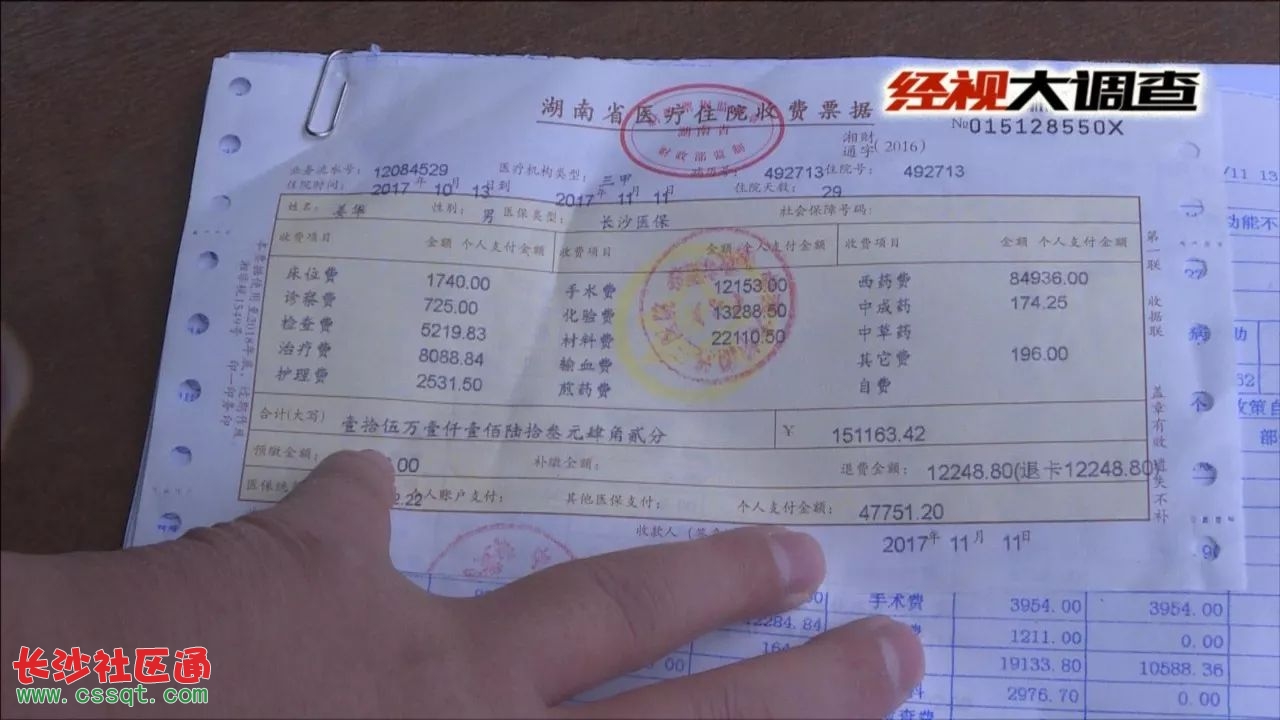 经视大调查
湖南省医疗住院收费票据
№015128550X
湘财通字(2016)
业务流水号: 12084529 医疗机构类型: 三甲 492713 住院号: 492713
住院时间: 2017年10月13日到 2017年11月11日 住院天数: 29
姓名: 姜华 性别: 男 医保类型: 长沙医保 社会保障号码:
收费项目 金额 个人支付金额 收费项目 金额 个人支付金额 收费项目 金额 个人支付金额
床位费 1740.00 手术费 12153.00 西药费 84936.00
诊察费 725.00 化验费 13288.50 中成药 174.25
检查费 5219.83 材料费 22110.50 中草药
治疗费 8088.84 输血费 其它费 196.00
护理费 2531.50 煎药费 自费
合计(大写) 壹拾伍万壹仟壹佰陆拾叁元肆角贰分 ¥ 151163.42
预缴金额: .00 补缴金额: 退费金额: 12248.80(退卡12248.80)
医保统 2.22 个人账户支付: 其他医保支付: 个人支付金额: 47751.20
收款人 2017年11月11日
第一联 收据联
盖章有效 遗失不补
湖南省
财政部监制
/11 13
功能不
手术费 3954.00 3954.00
12284.84 1211.00 0.00
19133.80 10588.36
2976.70 0.00
长沙社区通
www.cssqt.com